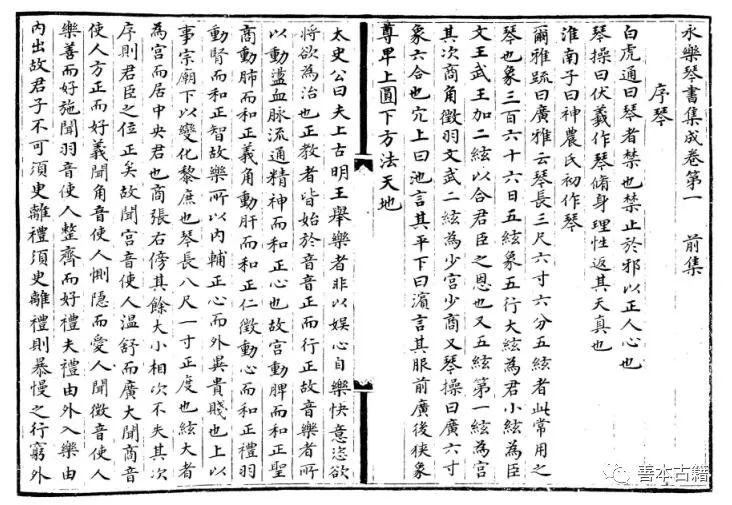 永樂琴書集成卷第一　前集
序琴
白虎通曰琴者禁也禁止於邪以正人心也
琴操曰伏羲作琴脩身理性返其天真也
淮南子曰神農氏初作琴
爾雅疏曰廣雅云琴長三尺六寸六分五絃者此常用之
琴也象三百六十六日五絃象五行大絃為君小絃為臣
文王武王加二絃以合君臣之恩也又五絃第一絃為宮
其次商角徵羽文武二絃為少宮少商又琴操曰廣六寸
象六合也穴上曰池言其平下曰濱言其服前廣後狹象
尊卑上圓下方法天地
太史公曰夫上古明王舉樂者非以娛心自樂快意恣欲
將欲為治也正教者皆始於音音正而行正故音樂者所
以動盪血脉流通精神而和正心也故宮動脾而和正聖
商動肺而和正義角動肝而和正仁徵動心而和正禮羽
動腎而和正智故樂所以內輔正心而外異貴賤也上以
事宗廟下以變化黎庶也琴長八尺一寸正度也絃大者
為宮而居中央君也商張右傍其餘大小相次不失其次
序則君臣之位正矣故聞宮音使人溫舒而廣大聞商音
使人方正而好義聞角音使人惻隱而愛人聞徵音使人
樂善而好施聞羽音使人整齊而好禮夫禮由外入樂由
內出故君子不可須臾離禮須臾離禮則暴慢之行窮外
善本古籍